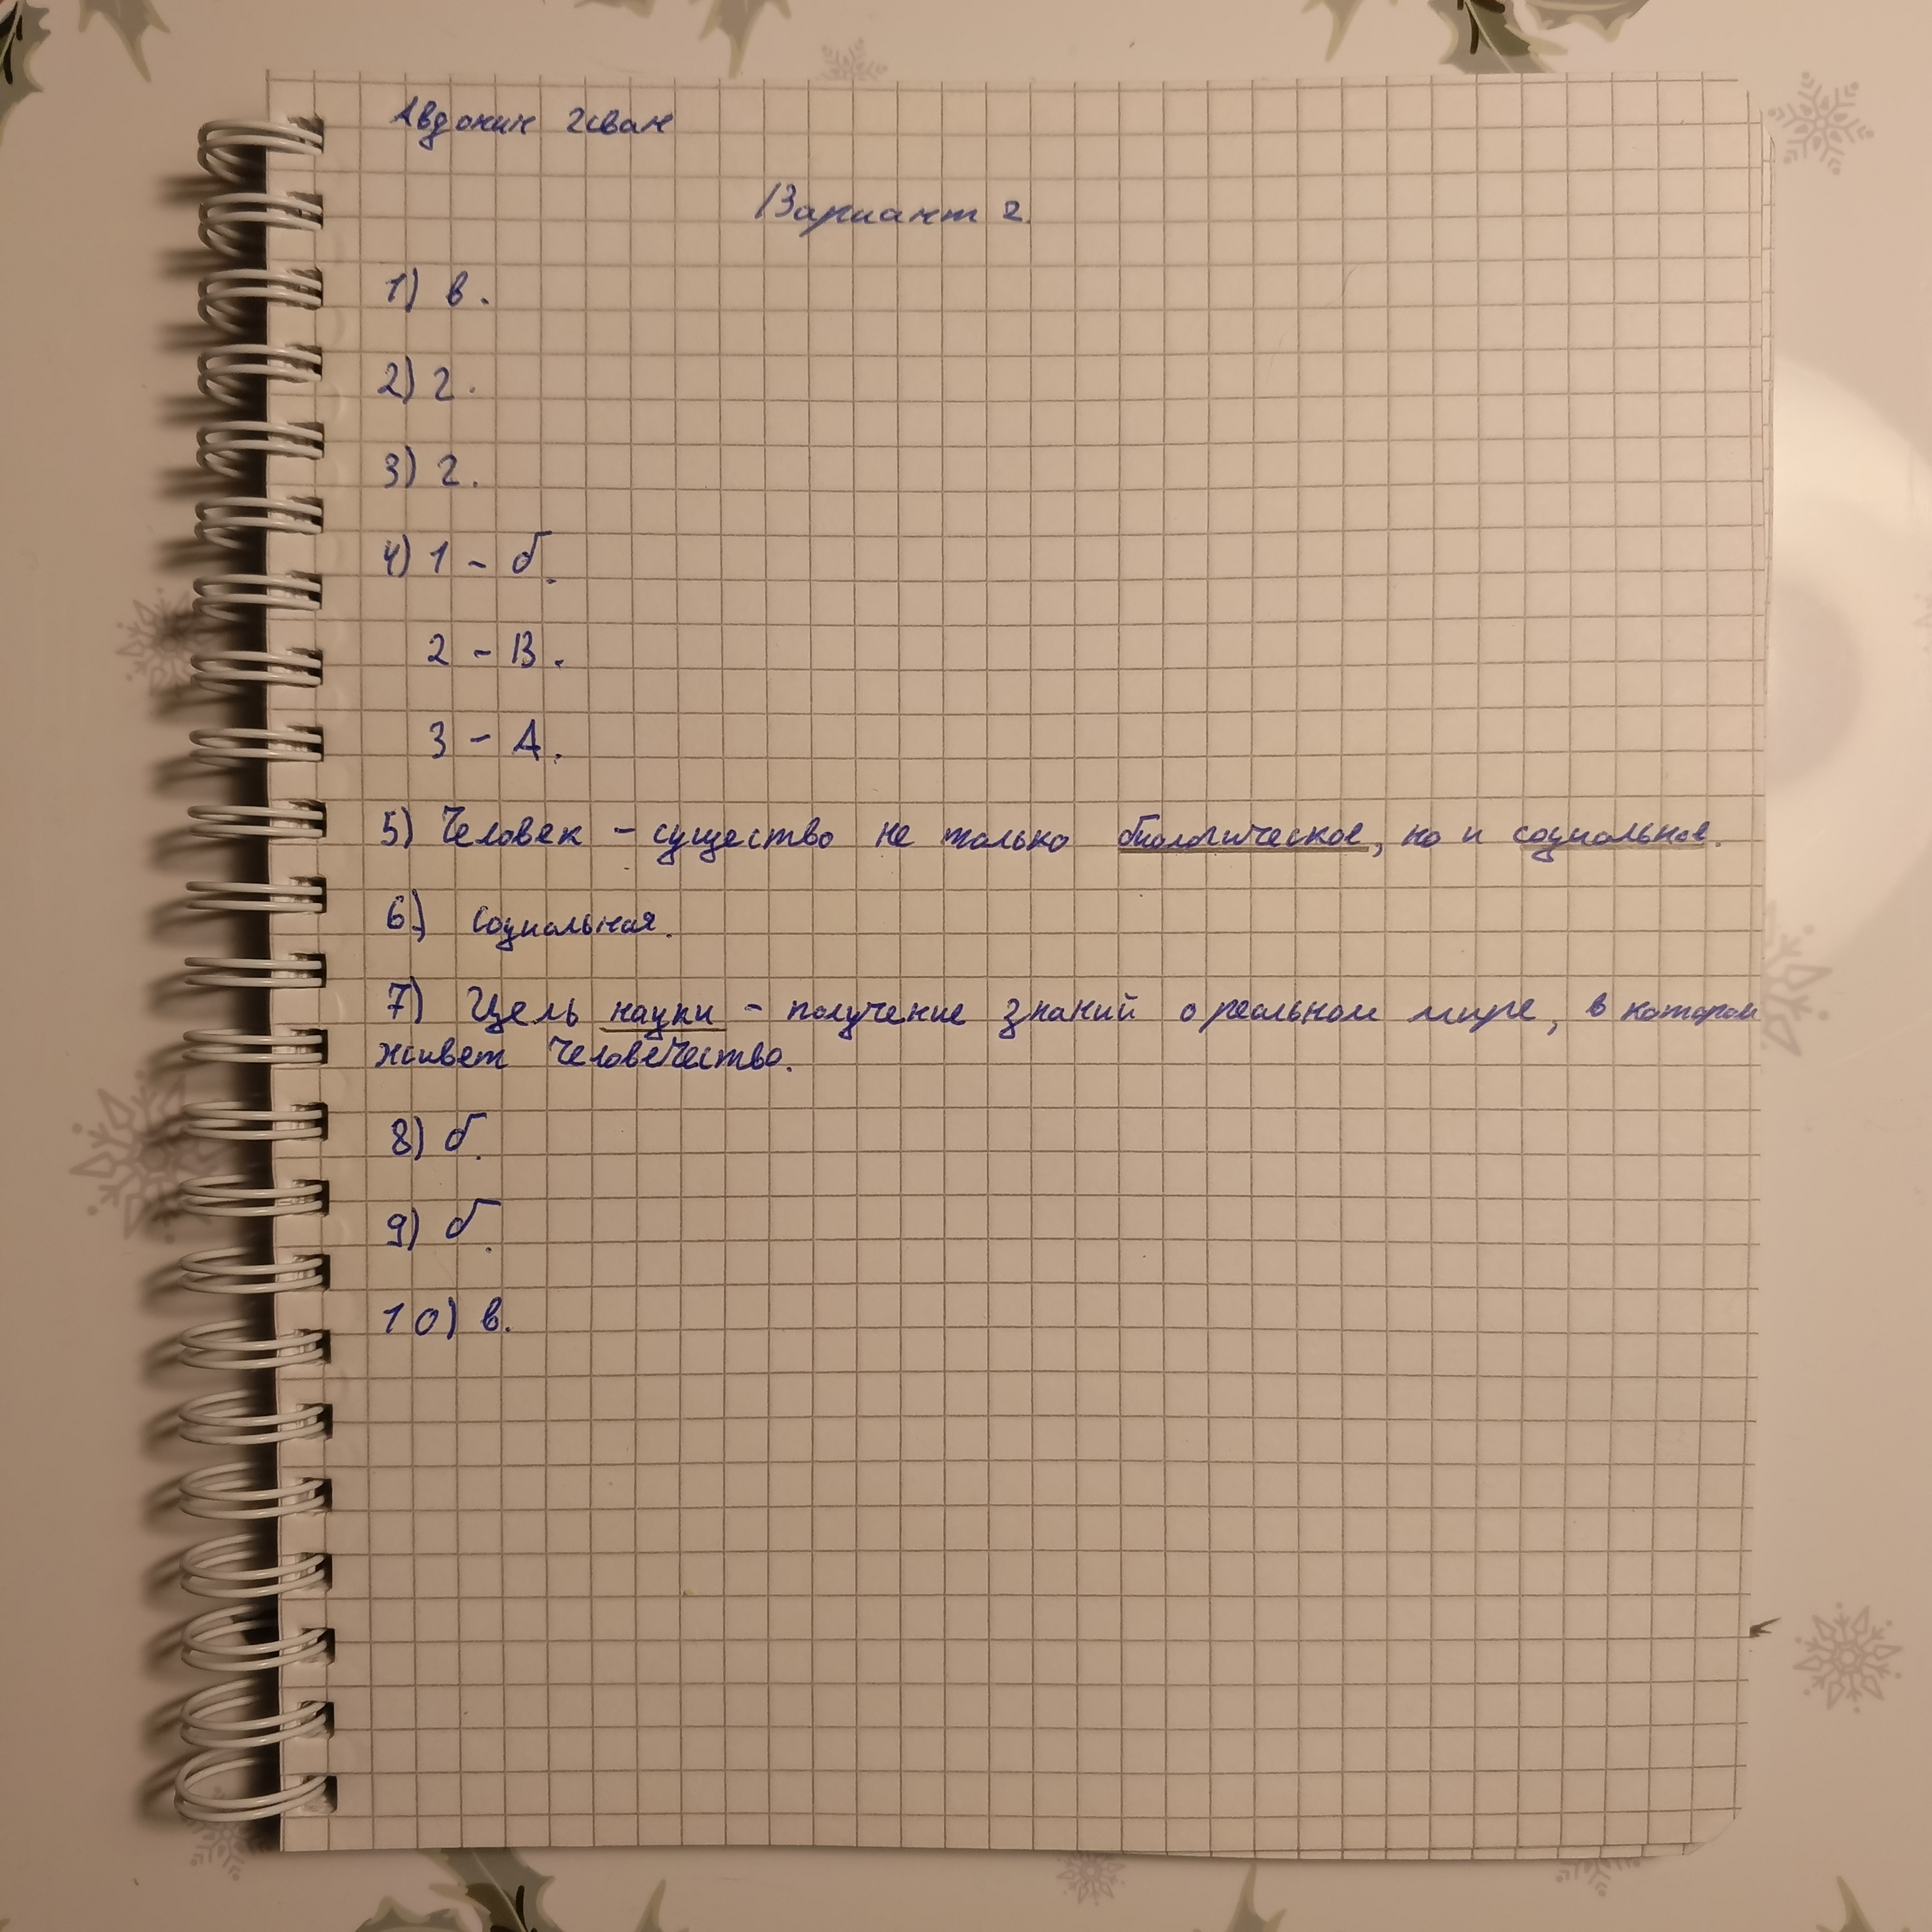 Авдонин Иван
Вариант 2.
1) в.
2) г.
3) г.
4) 1 - б.
2 - В.
3 - А.
5) Человек - существо не только биологическое, но и социальное.
6) Социальная.
7) Цель науки - получение знаний о реальном мире, в котором
живет человечество.
8) б.
9) б.
10) в.